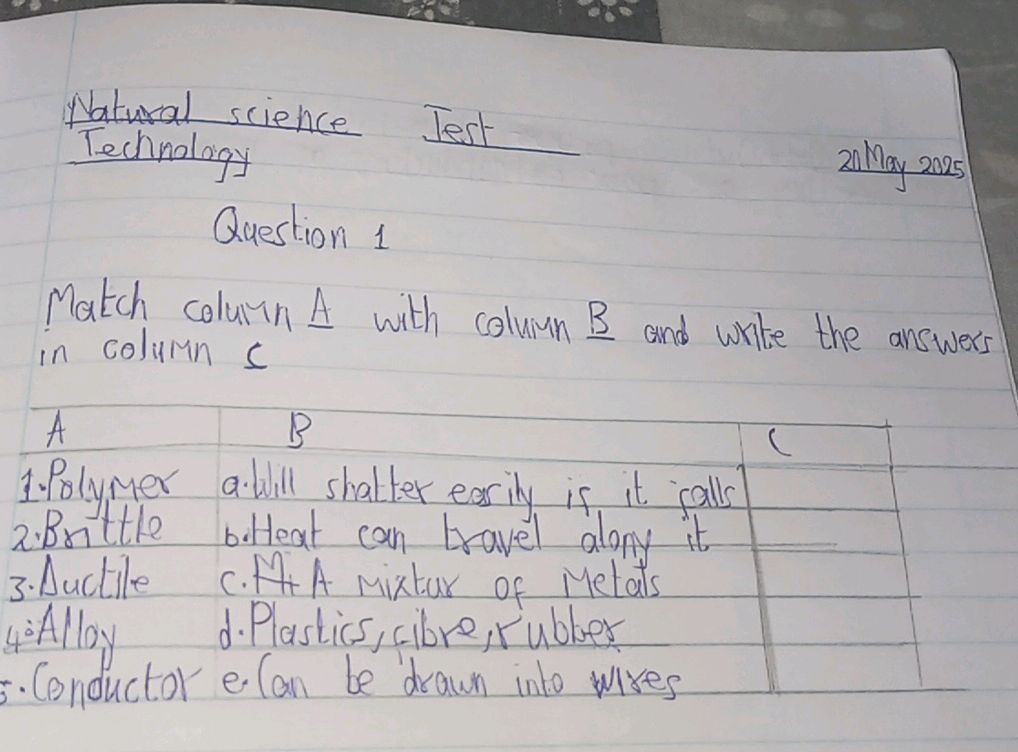 Natural science Test
Technology
20 May 2025
Question 1
Match column A with column B and write the answers
in column C
A B C
1. Polymer a. Will shatter easily if it falls
2. Brittle b. Heat can travel alony it
3. Ductile c. A Mixtur of Metals
4. Alloy d. Plastics, fibre, rubber
5. Conductor e. Can be drawn into wires